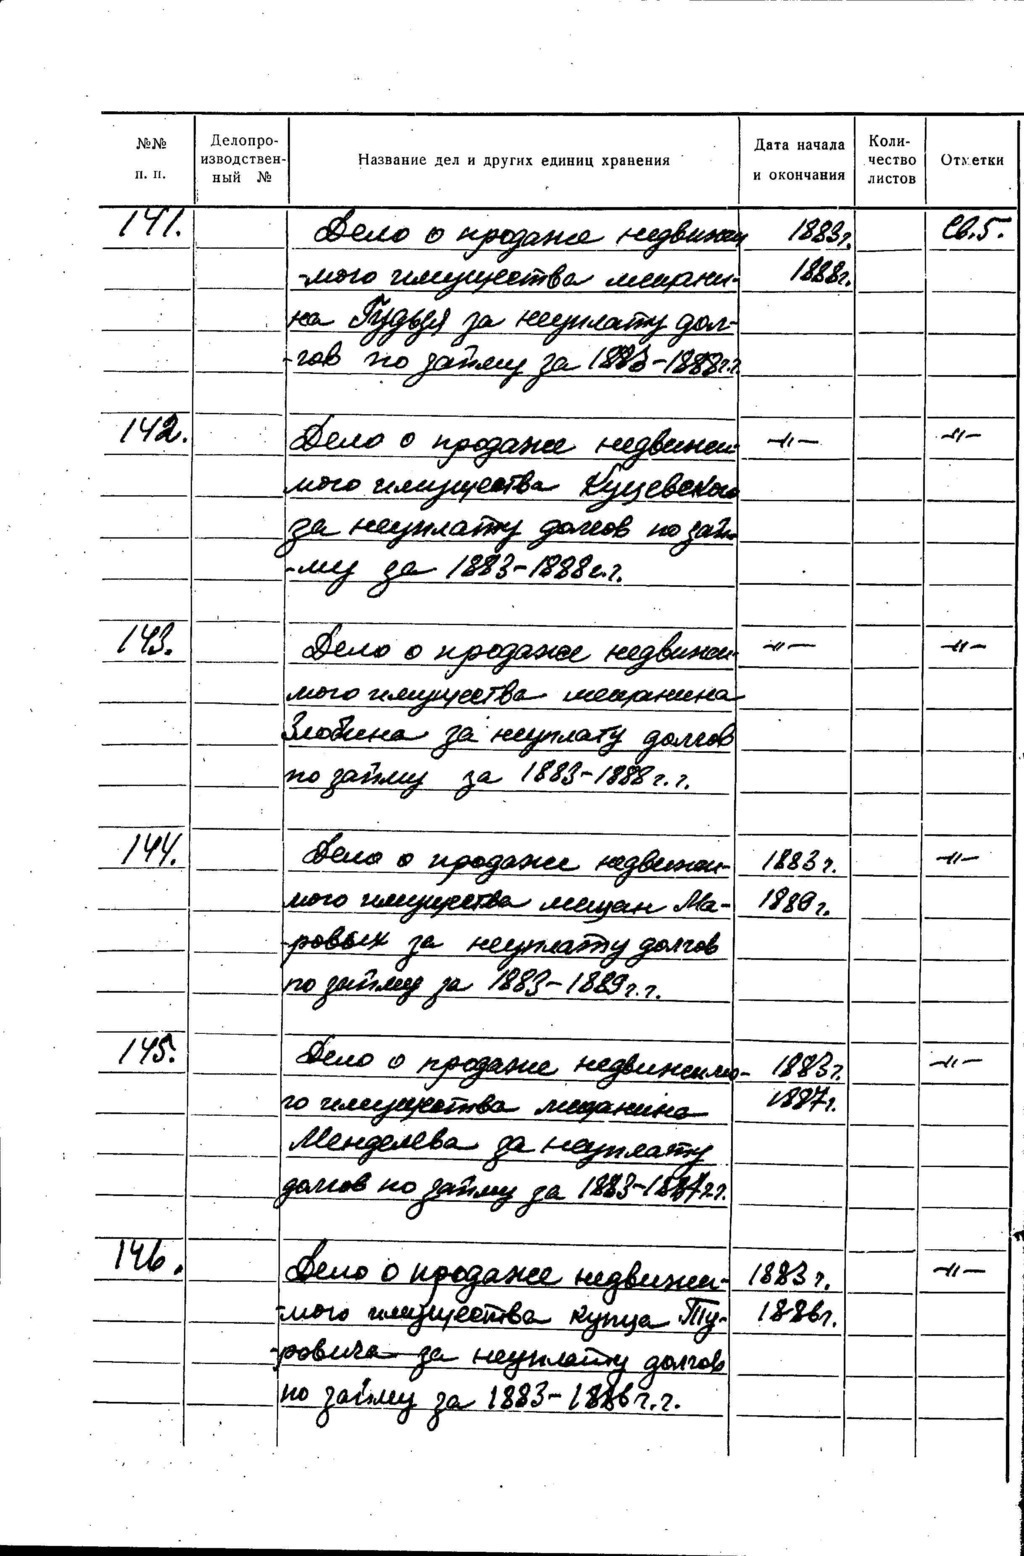 №№ п. п.
Делопро-
изводствен-
ный №
Название дел и других единиц хранения
Дата начала
и окончания
Коли-
чество
листов
Отметки
141. Дело о продаже недвижи 1883г. Св.5.
-мого имущества мещани- 1888г.
на за неуплату дол-
-гов по займу за 1883-1888г.г.
142. Дело о продаже недвижи- -"- -"-
мого имущества Куцевского
за неуплату долгов по зай-
-му за 1883-1888г.г.
143. Дело о продаже недвижи- -"- -"-
мого имущества мещанина
Злобина за неуплату долгов
по займу за 1883-1888г.г.
144. Дело о продаже недвижи- 1883г. -"-
мого имущества мещан Ма- 1889г.
-ровых за неуплату долгов
по займу за 1883-1889г.г.
145. Дело о продаже недвижимо- 1883г. -"-
го имущества мещанина 1887г.
Менделева за неуплату
долгов по займу за 1883-1887г.г.
146. Дело о продаже недвижи- 1883г. -"-
-мого имущества купца Ту- 1886г.
-ровича за неуплату долгов
по займу за 1883-1886г.г.